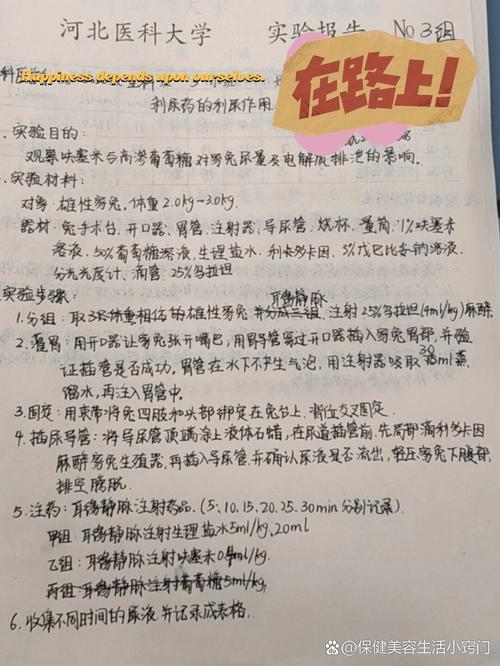 河北医科大学 实验报告 No 3组
Happiness depends upon ourselves.
在路上!
利尿药的利尿作用
实验目的:
观察呋塞米与高渗葡萄糖对家兔尿量及电解质排泄的影响.
实验材料:
对象:雄性家兔,体重2.0kg~3.0kg.
器材:兔手术台、开口器、胃管、注射器、导尿管、烧杯、量筒、1%呋塞米
溶液、50%葡萄糖溶液,生理盐水、利多卡因、3%戊巴比妥钠溶液.
分光光度计、滴管、25%乌拉坦
实验步骤: 耳缘静脉
1.分组:取3只体重相似的雄性家兔并分成三组,注射25%乌拉坦(4ml/kg)麻醉.
2.灌胃:用开口器让家兔张开嘴巴,用胃导管穿过开口器插入家兔胃部,并验
证插管是否成功,胃管在水下不产生气泡,用注射器吸取30ml蒸
馏水,再注入胃管中.
3.固定:用束带将兔四肢和头部绑定在兔台上.背位交叉固定.
4.插尿导管:将导尿管顶端涂上液体石蜡,在尿道插管前,先局部滴利多卡因
麻醉家兔生殖器,再插入导尿管,并确认尿液是否流出,轻压家兔下腹部,
排空膀胱.
5.注药:耳缘静脉注射药品.(5、10.15.20.25.30min分别记录).
甲组:耳缘静脉注射生理盐水5ml/kg,20ml
乙组:耳缘静脉注射呋塞米0.4ml/kg.
丙组:耳缘静脉注射葡萄糖5ml/kg,
6.收集不同时间的尿液并记录成表格.
@保健美容生活小窍门